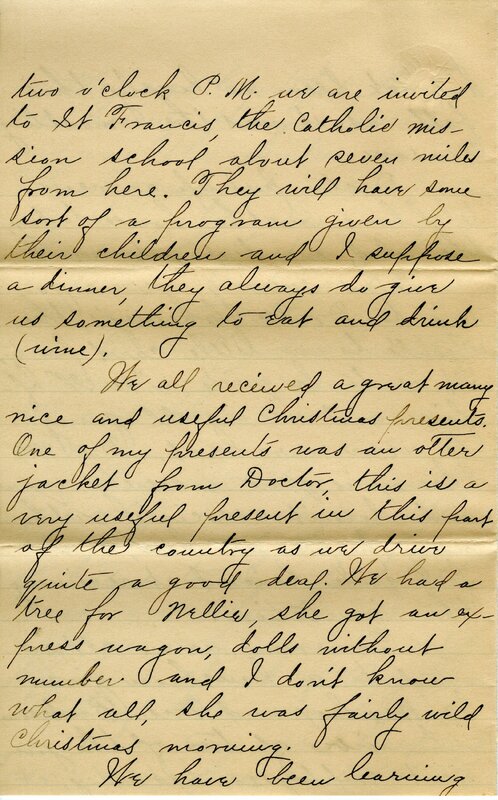 two o'clock P. M. we are invited
to St Francis, the Catholic mis-
sion school about seven miles
from here. They will have some
sort of a program given by
their children and I suppose
a dinner, they always do give
us something to eat and drink
(wine).
We all received a great many
nice and useful Christmas presents.
One of my presents was an otter
jacket from Doctor, this is a
very useful present in this part
of the country as we drive
quite a good deal. We had a
tree for Nellie, she got an ex-
press wagon, dolls without
number and I don't know
what all, she was fairly wild
Christmas morning.
We have been learning